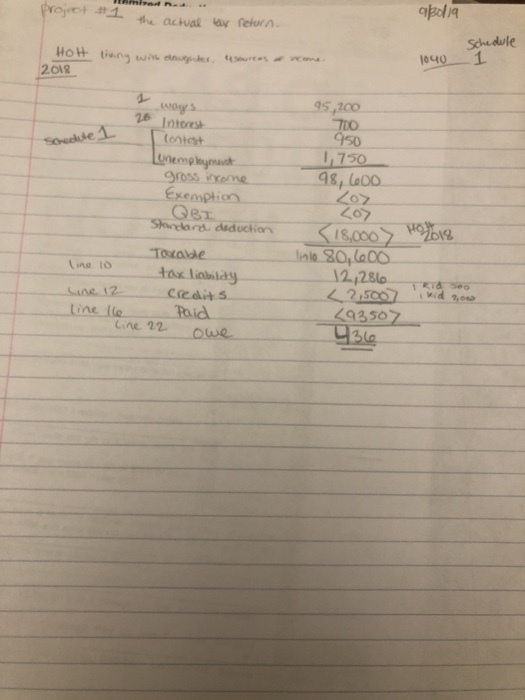 Project #1
the actual tax return.
9/30/19
HOH living with daughter, 4 sources of income.
1040
Schedule 1
2018
1 wages 95,200
2b Interest 700
Schedule 1
Contest 950
Unemployment 1,750
gross income 98,600
Exemption <0>
QBI <0>
Standard deduction <18,000> HOH 2018
Taxable line 10 80,600
line 10 tax liability 12,286
Line 12 Credits <2,500> 1 kid 500
1 kid 2,000
line 16 Paid <9350>
Line 22 owe 436